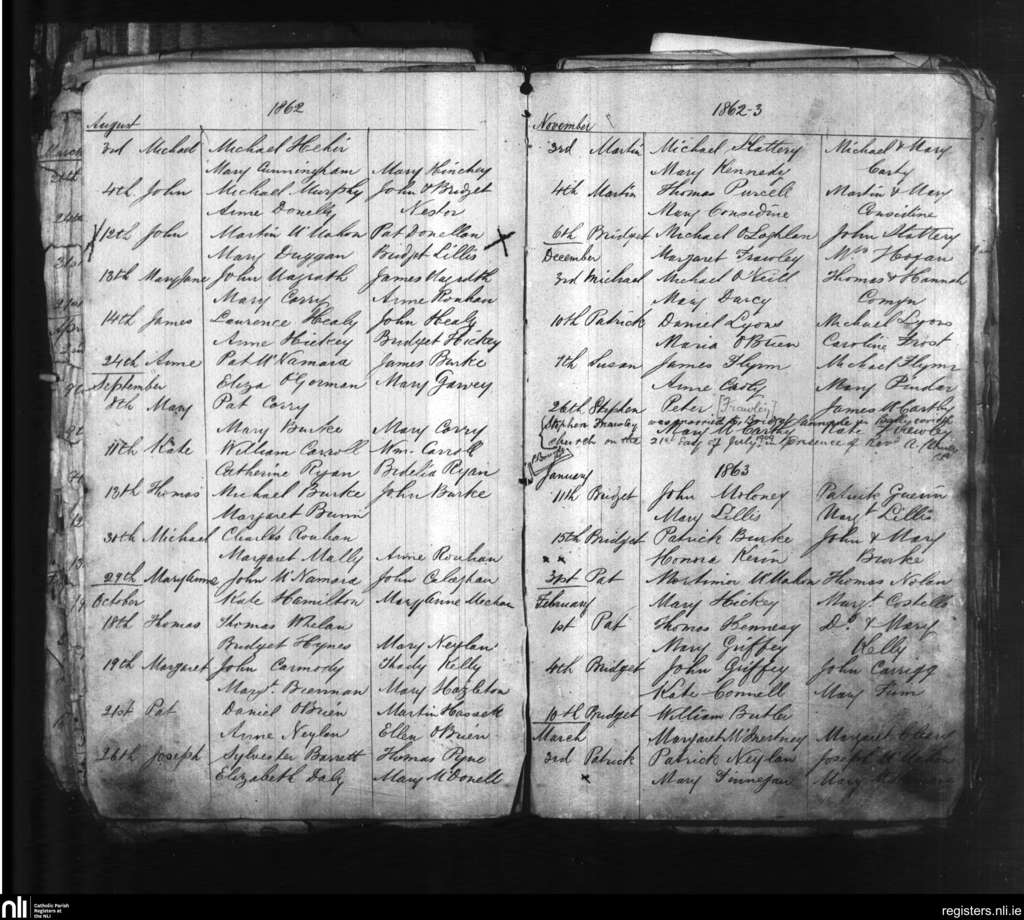 1862
August
3rd Michael Michael Hehir
Mary Cunningham Mary Hinchey
4th John Michael Murphy John & Bridget
Anne Donelly Nestor
12th John Martin McMahon Pat Donellan
Mary Duggan Bridget Lillis
13th MaryJane John Magrath James Magrath
Mary Corry Anne Rouhan
14th James Laurence Healy John Healy
Anne Hickey Bridget Hickey
24th Anne Pat McNamara James Burke
September Eliza O'Gorman Mary Garvey
8th Mary Pat Corry
Mary Burke Mary Corry
11th Kate William Carroll Wm. Carroll
Catherine Ryan Bidelia Ryan
13th Thomas Michael Burke John Burke
Margaret Bunn
Michael Charles Rouhan
Margaret Mally Anne Rouhan
29th MaryAnne John McNamara John Calaghan
October Kate Hamilton MaryAnne Mechan
18th Thomas Thomas Whelan
Bridget Hynes Mary Neylan
19th Margaret John Carmody Thady Kelly
Margt. Brennan Mary Hazleton
21st Pat Daniel O'Brien Martin Hassett
Anne Neylon Ellen O'Brien
26th Joseph Sylvester Barrett Thomas Pyne
Elizabeth Daly Mary McDonell
1862-3
November
3rd Martin Michael Slattery Michael & Mary
Mary Kennedy Carty
4th Martin Thomas Purcell Martin & Mary
Mary Considine Considine
6th Bridget Michael O'Loghlan John Slattery
December Margaret Frawley Mrs Hogan
3rd Michael Michael O'Neill Thomas & Hannah
Mary Darcy Comyn
10th Patrick Daniel Lyons Michael Lyons
Maria O'Brien Caroline Frost
7th Susan James Flynn Michael Flynn
Anne Casey Mary Pindar
26th Stephen Peter [Frawley] James McCarthy
Stephen Frawley was married to Bridget
Mary McCarthy Kate Frawley
church on the 21st day of July 1902 in presence of Revd A.
January 1863
11th Bridget John Moloney Patrick Guerin
Mary Lillis Margt Lillis
15th Bridget Patrick Burke John & Mary
Honora Kerin Burke
31st Pat Mortimor McMahon Thomas Nolan
February Mary Hickey Margt. Costello
1st Pat Thomas Kenneay Do. & Mary
Mary Griffey Kelly
4th Bridget John Griffey John Carrigg
Kate Connell Mary Finn
10th Bridget William Butler
March Margaret McInerney Margaret Cleary
3rd Patrick Patrick Neylan Joseph McMahon
Mary Finnegan Mary
nli Catholic Parish
Registers at
the NLI
registers.nli.ie